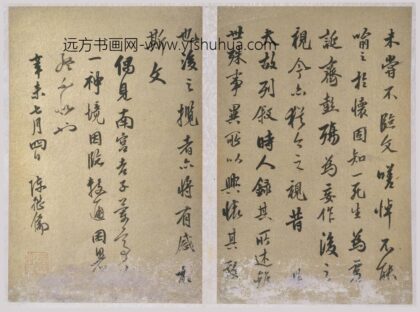 远方书画网-www.yfshuhua.com
未嘗不臨文嗟悼不能
喻之於懷固知一死生為虛
誕齊彭殤為妄作後之
視今亦猶今之視昔
夫故列敘時人錄其所述雖
世殊事異所以興懷其致
也後之攬者亦將有感於
斯文
偶見南宮
一神境因臨
辛未七月四日